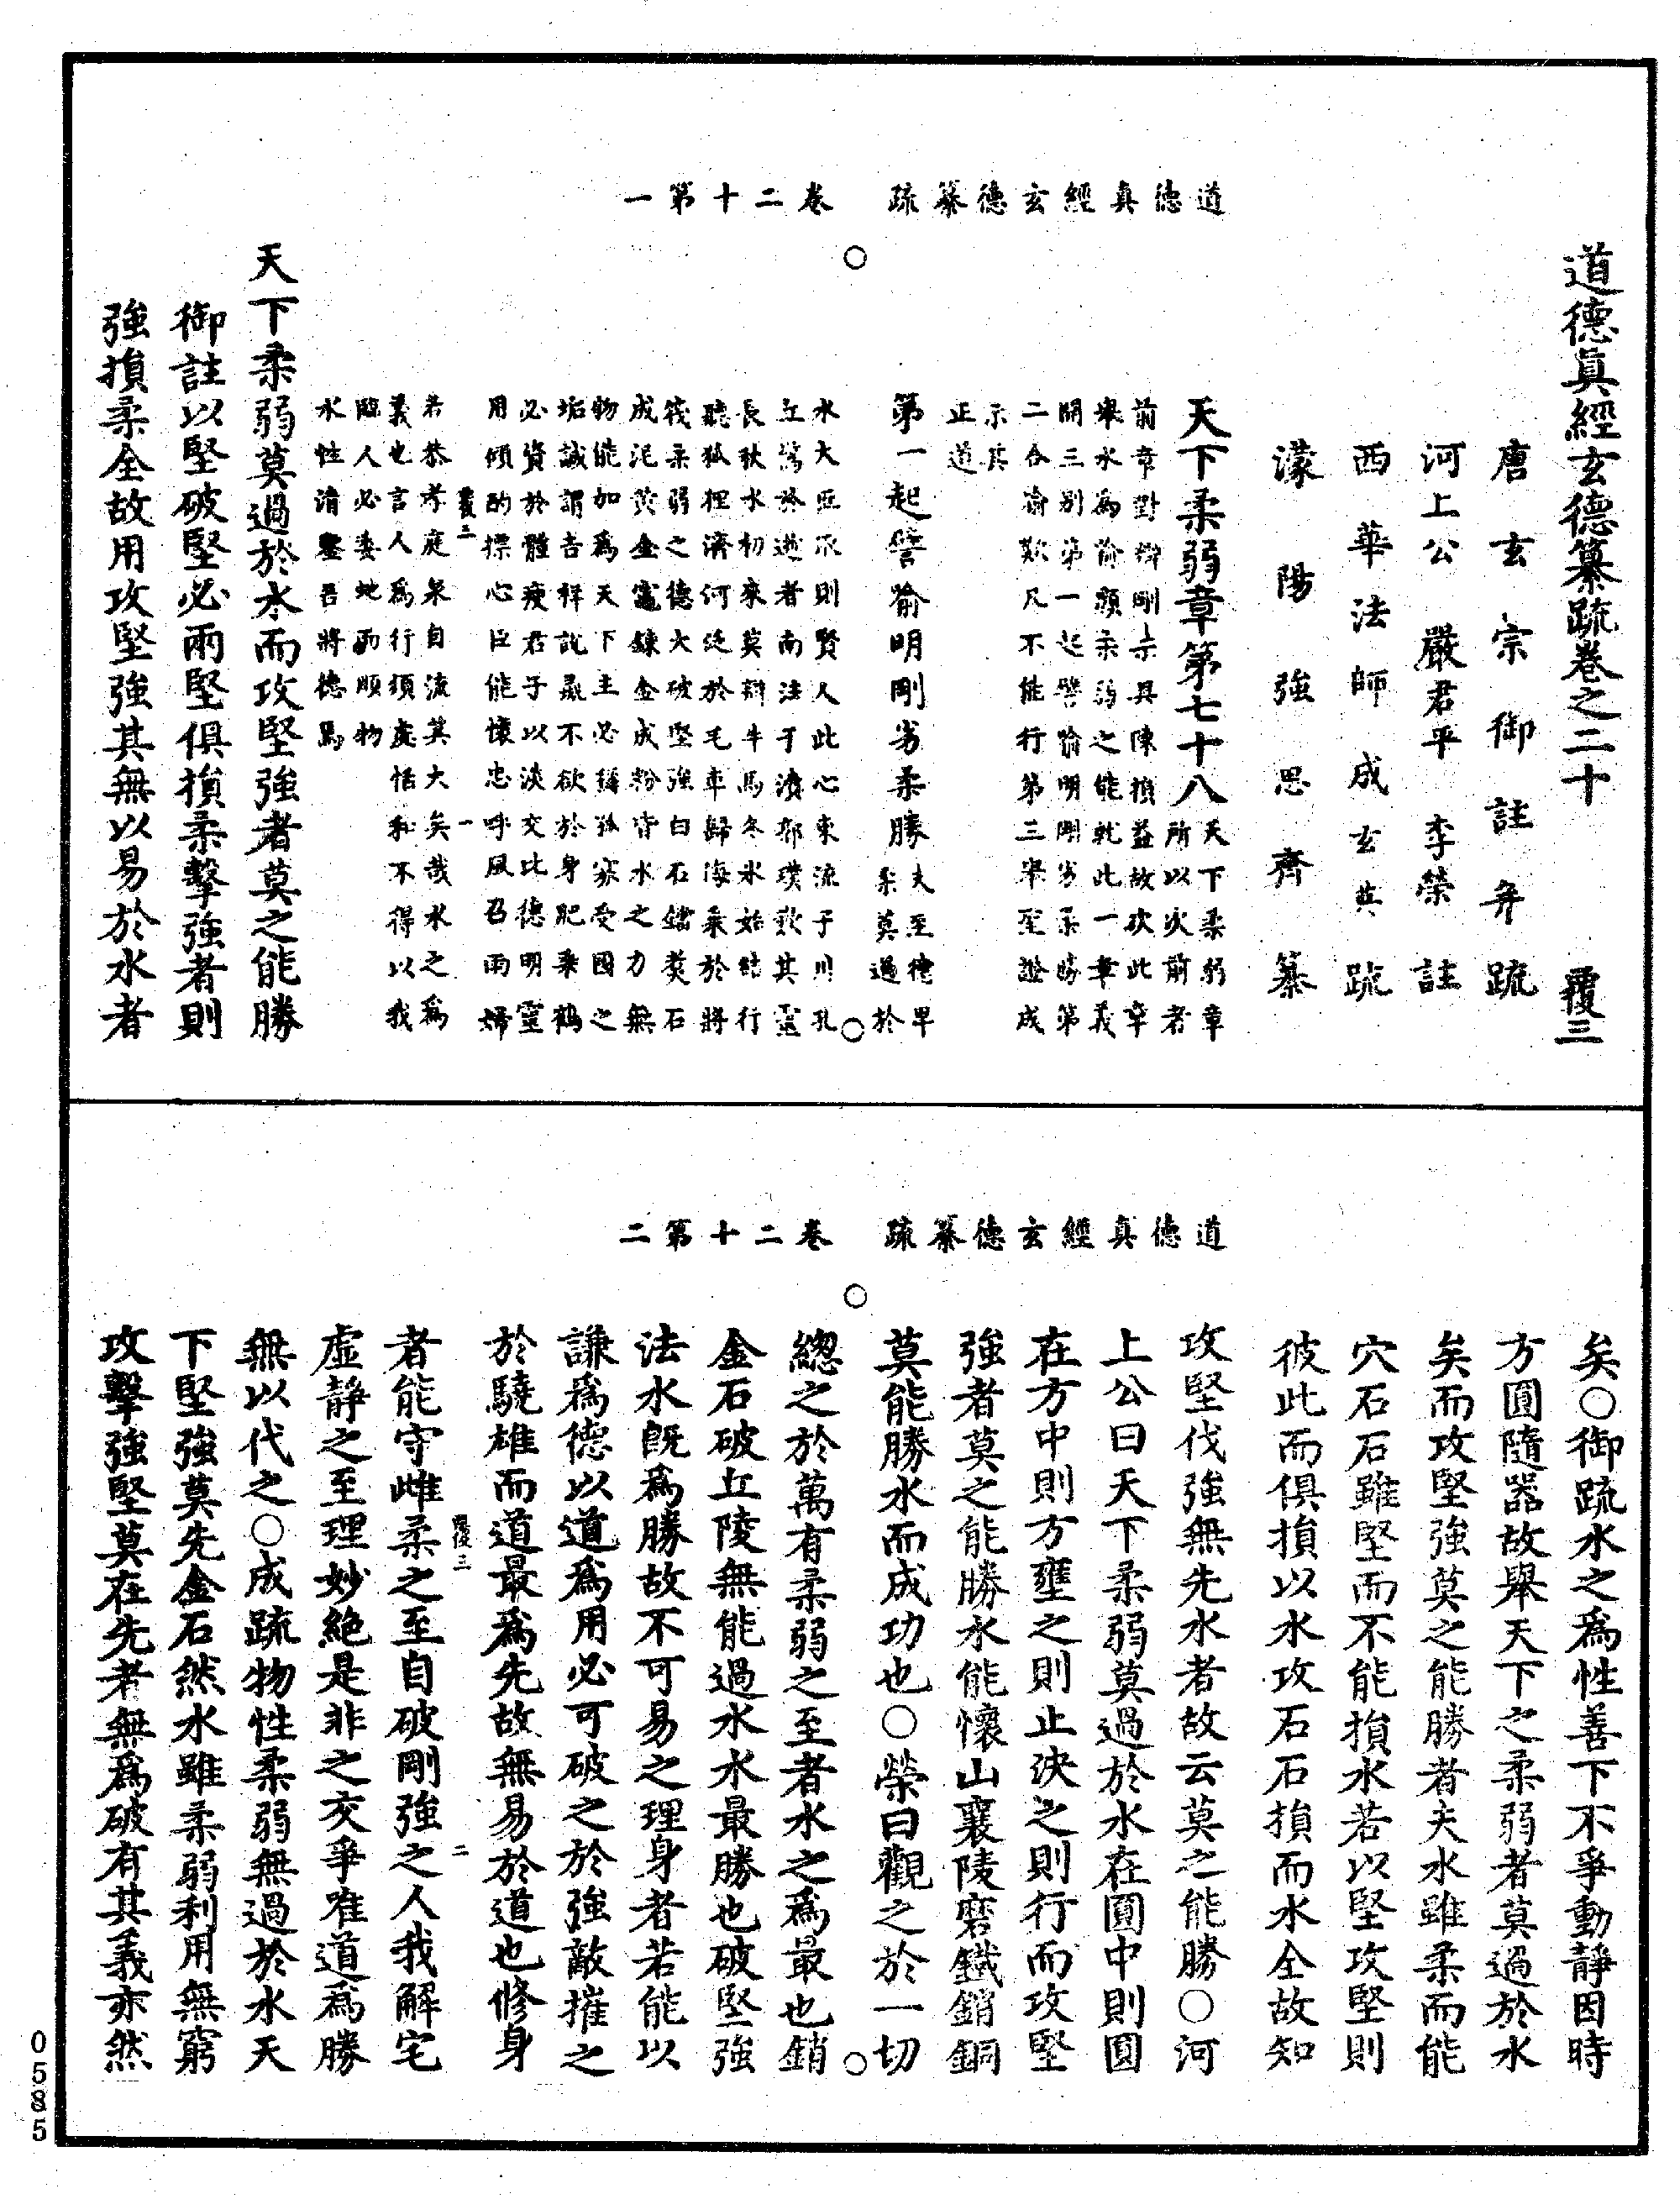 道德真經玄德纂疏　卷二十第一
道德眞經玄德纂疏卷之二十　覆三
唐玄宗御註并疏
河上公　嚴君平　李榮註
西華法師成玄英疏
濛陽強思齊纂
天下柔弱章第七十八
天下柔弱章
所以次前者
前章對辯剛示具陳損益故次此章
舉水為喻顯柔弱之能就此一章義
開三別第一起譬喻明剛劣柔勝第
二合喻歎凡不能行第三舉至證成
示其
正道
第一起譬喻明剛劣柔勝
夫至德卑
柔莫過於
水大匹不則賢人此心東流子川孔
丘驚於逝者南注于濟郭璞歎其靈
長秋水初來莫辯牛馬冬氷始結行
聽狐狸濟河徒於毛車歸海乘於將
筏柔弱之德大破堅強白石鑪爇石
成泥黃金竈鍊金成粉皆水之力無
物能加為天下主必稱孤寡受國之
垢誠謂吉祥說最不欲於身肥乘鶴
必資於體瘦君子以淡交比德明靈
用傾酌標心臣能懷忠呼風召雨婦
覆三　一
若恭孝庭泉自流莫大矣哉水之為
義也言人為行須處恬和不得以我
臨人必委地而順物
水性清鑒吾將德焉
天下柔弱莫過於水而攻堅強者莫之能勝
御註以堅破堅必兩堅俱損柔擊強者則
強損柔全故用攻堅強其無以易於水者
道德真經玄德纂疏　卷二十第二
矣○御疏水之為性善下不爭動靜因時
方圓隨器故舉天下之柔弱者莫過於水
矣而攻堅強莫之能勝者夫水雖柔而能
穴石石雖堅而不能損水若以堅攻堅則
彼此而俱損以水攻石石損而水全故知
攻堅伐強無先水者故云莫之能勝○河
上公曰天下柔弱莫過於水在圓中則圓
在方中則方壅之則止決之則行而攻堅
強者莫之能勝水能懷山襄陵磨鐵銷銅
莫能勝水而成功也○榮曰觀之於一切
總之於萬有柔弱之至者水之為最也銷
金石破丘陵無能過水水最勝也破堅強
法水旣為勝故不可易之理身者若能以
謙為德以道為用必可破之於強敵摧之
於驍雄而道最為先故無易於道也修身
覆三　二
者能守雌柔之至自破剛強之人我解宅
虛靜之至理妙絕是非之交爭唯道為勝
無以代之○成疏物性柔弱無過於水天
下堅強莫先金石然水雖柔弱利用無窮
攻擊強堅莫在先者無為破有其義亦然
0585